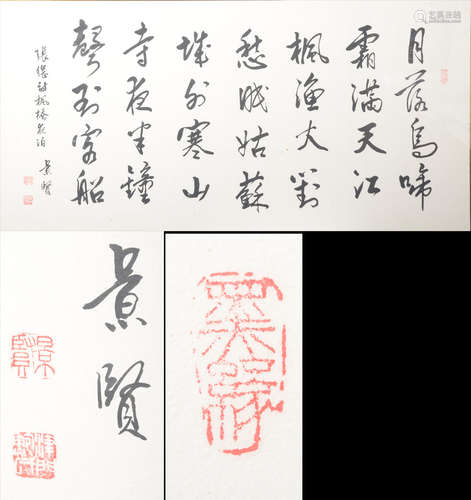 月落烏啼
霜滿天江
楓漁火對
愁眠姑蘇
城外寒山
寺夜半鐘
聲到客船
張繼詩楓橋夜泊 景賢
景賢
景賢